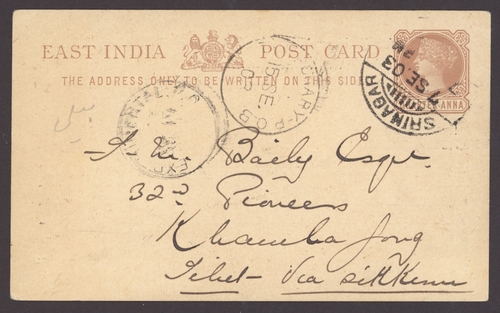 EAST INDIA POST CARD
THE ADDRESS ONLY TO BE WRITTEN ON THIS SIDE
SRINAGAR
SE 03
PM
15 SE
03
F. M. Baily Esqr.
32nd Pioneers
Khamba Jong
Tibet - Via Sikkim